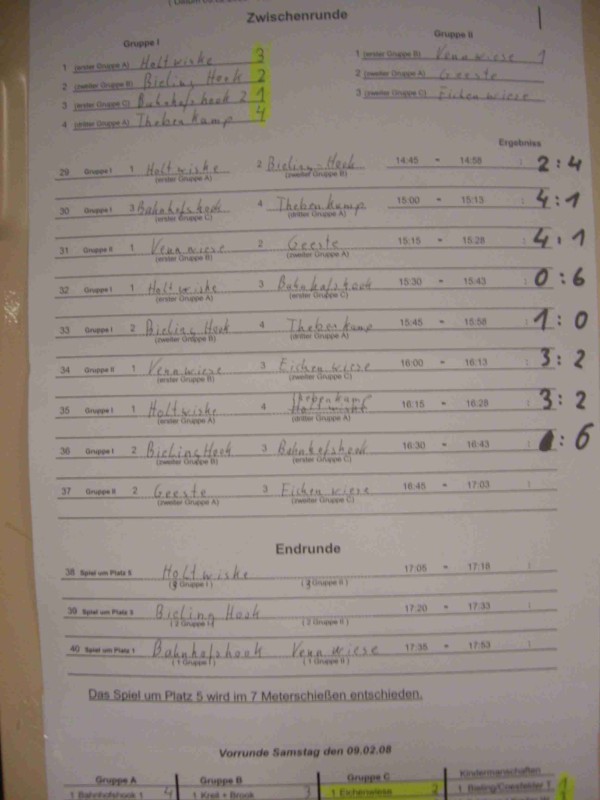 Zwischenrunde
Gruppe I Gruppe II
1 (erster Gruppe A) Holtwiske 3 1 (erster Gruppe B) Vennwiese 1
2 (zweiter Gruppe B) Bieling Hook 2 2 (zweiter Gruppe A) Geeste
3 (erster Gruppe C) Bahnhofshook 2 1 3 (zweiter Gruppe C) Eichenwiese
4 (dritter Gruppe A) Thebenkamp 4
Ergebniss
29 Gruppe I 1 Holtwiske 2 Bieling-Hook 14:45 - 14:58 2:4
(erster Gruppe A) (zweiter Gruppe B)
30 Gruppe I 3 Bahnhofshook 4 Thebenkamp 15:00 - 15:13 4:1
(erster Gruppe C) (dritter Gruppe A)
31 Gruppe II 1 Vennwiese 2 Geeste 15:15 - 15:28 4:1
(erster Gruppe B) (zweiter Gruppe A)
32 Gruppe I 1 Holtwiske 3 Bahnhofshook 15:30 - 15:43 0:6
(erster Gruppe A) (erster Gruppe C)
33 Gruppe I 2 Bieling Hook 4 Thebenkamp 15:45 - 15:58 1:0
(zweiter Gruppe B) (dritter Gruppe A)
34 Gruppe II 1 Vennwiese 3 Eichenwiese 16:00 - 16:13 3:2
(erster Gruppe B) (zweiter Gruppe C)
35 Gruppe I 1 Holtwiske 4 Thebenkamp 16:15 - 16:28 3:2
(erster Gruppe A) (dritter Gruppe A)
36 Gruppe I 2 Bieling Hook 3 Bahnhofshook 16:30 - 16:43 :6
(zweiter Gruppe B) (erster Gruppe C)
37 Gruppe II 2 Geeste 3 Eichenwiese 16:45 - 17:03 :
(zweiter Gruppe A) (zweiter Gruppe C)
Endrunde
38 Spiel um Platz 5 Holtwiske 17:05 - 17:18 :
(3 Gruppe I) (3 Gruppe II)
39 Spiel um Platz 3 Bieling Hook 17:20 - 17:33 :
(2 Gruppe I) (2 Gruppe II)
40 Spiel um Platz 1 Bahnhofshook Vennwiese 17:35 - 17:53 :
(1 Gruppe I) (1 Gruppe II)
Das Spiel um Platz 5 wird im 7 Meterschießen entschieden.
Vorrunde Samstag den 09.02.08
Gruppe A Gruppe B Gruppe C Kindermannschaften
1 Bahnhofshook 1 4 1 Kreil + Brook 3 1 Eichenwiese 2 1 Bieling/Coesfelder 1